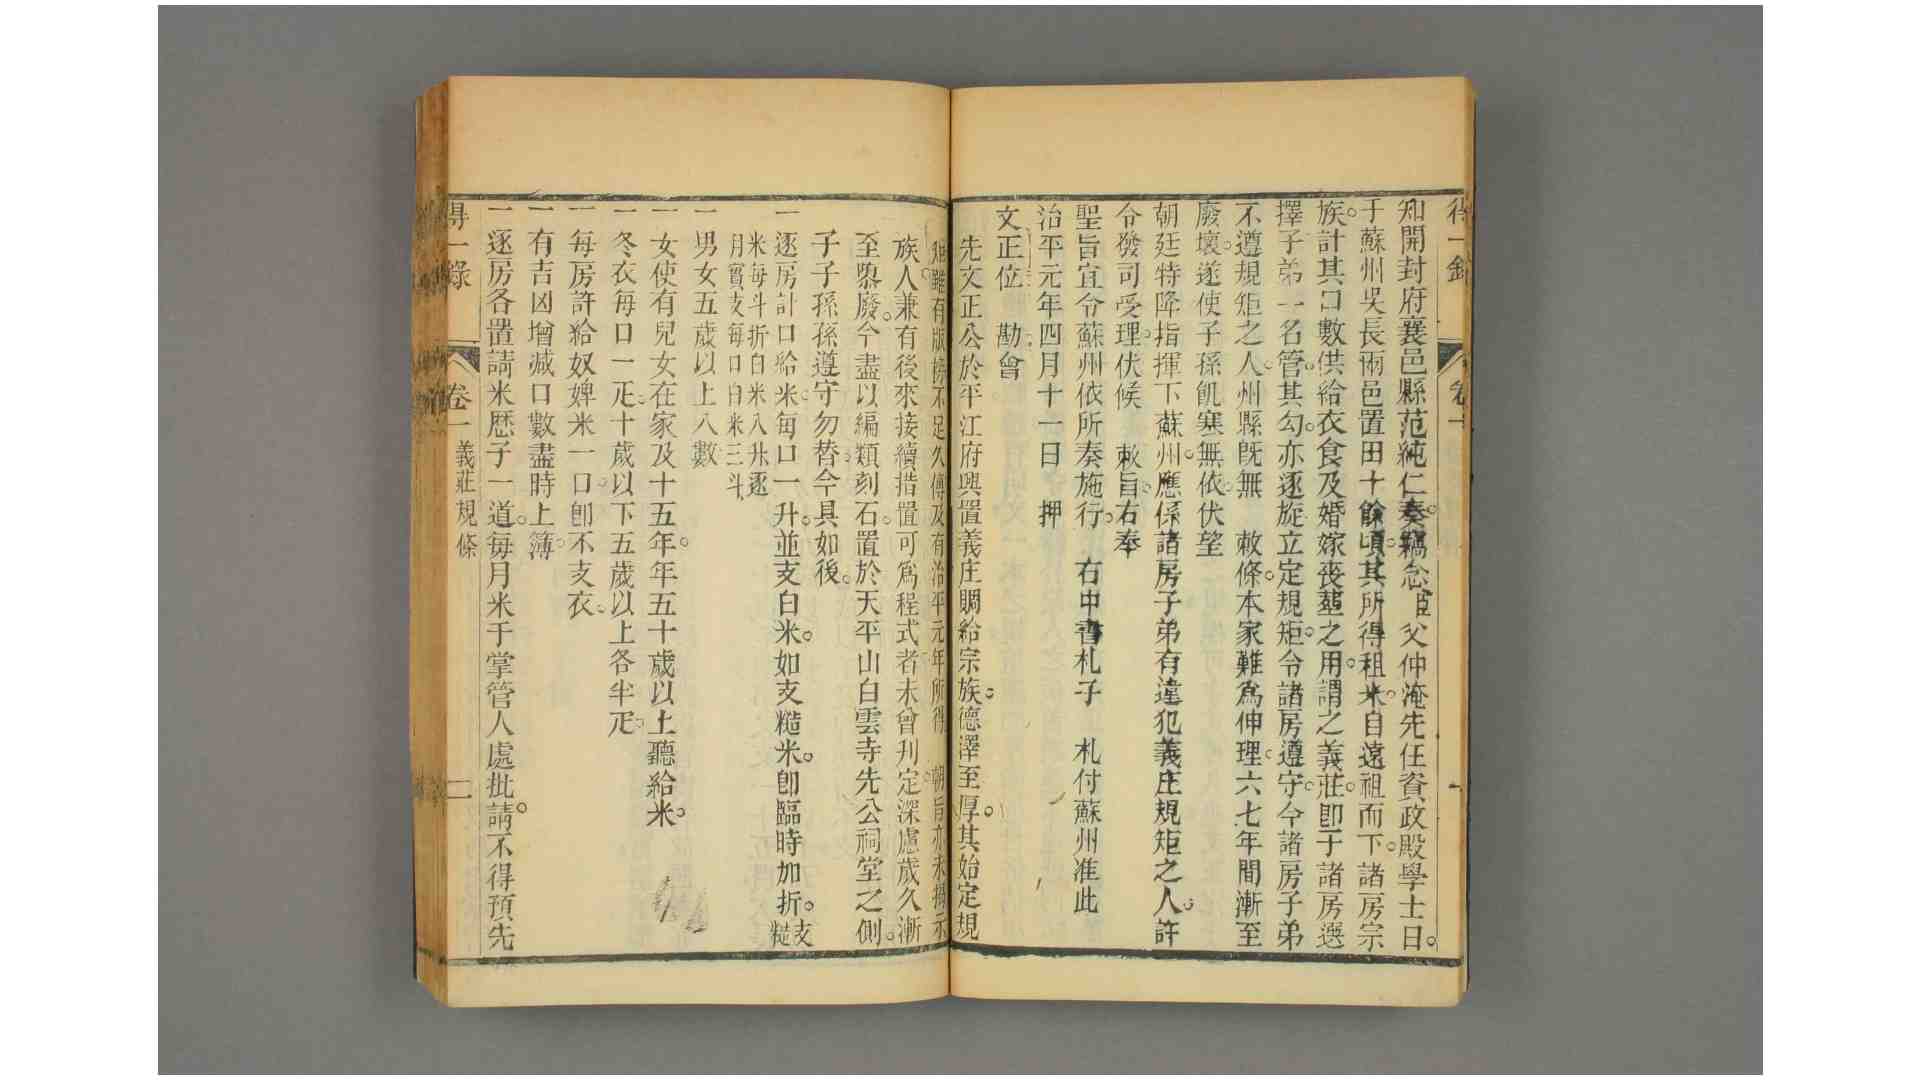 得一錄
卷一
一
知開封府襄邑縣范純仁奏竊念臣父仲淹先任資政殿學士日。
于蘇州吳長兩邑置田十餘頃其所得租米。自遠祖而下。諸房宗
族。計其口數供給衣食及婚嫁喪塟之用。謂之義莊。卽于諸房選
擇子弟一名管。其勾。亦逐旋立定規矩。令諸房遵守。今諸房子弟
不遵規矩之人。州縣旣無 敕條。本家難爲伸理。六七年間漸至
廢壞。遂使子孫飢寒無依。伏望
朝廷特降指揮下蘇州。應係諸房子弟有違犯義庄規矩之人。許
令發司受理。伏候 敕旨。右奉
聖旨宜令蘇州依所奏施行。 右中書札子 札付蘇州准此
治平元年四月十一日 押
文正位 勘會
先文正公於平江府興置義庄賙給宗族。德澤至厚。其始定規
矩雖有版榜不足久傳及有治平元年所得 朝旨亦未揭示
族人。兼有後來接續措置可爲程式者未曾刋定深慮歲久漸
至隳廢。今盡以編類刻石。置於天平山白雲寺先公祠堂之側。
子子孫孫遵守勿替今具如後。
一逐房計口給米。每口一升。並支白米。如支糙米。卽臨時加折。支糙
米每斗折白米八升逐
月實支每口白米三斗
一男女五歲以上入數
一女使有兒女在家及十五年。年五十歲以上聽給米。
一冬衣每口一疋。十歲以下五歲以上各半疋。
一每房許給奴婢米一口。卽不支衣。
一有吉凶增減口數盡時上簿。
一逐房各置請米歷子一道。每月米于掌管人處批請。不得預先
得一錄
卷一
義莊規條
二